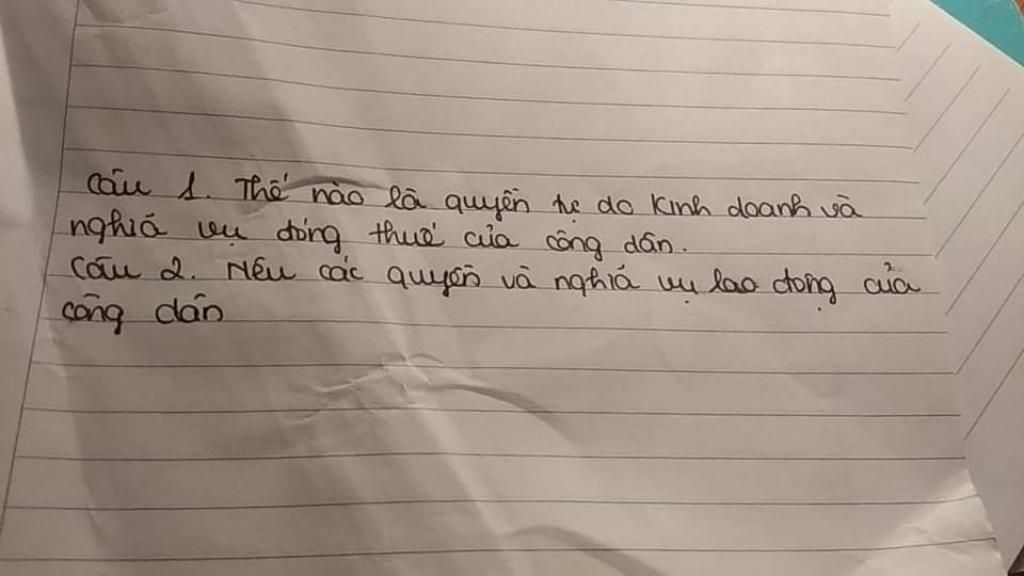 Câu 1. Thế nào là quyền tự do kinh doanh và
nghĩa vụ đóng thuế của công dân.
Câu 2. Nêu các quyền và nghĩa vụ lao động của
công dân